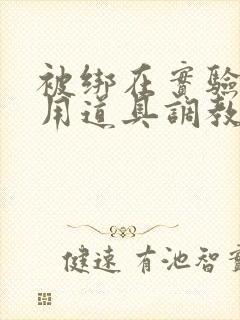 被绑在實驗
用道具調教
健速 有池智